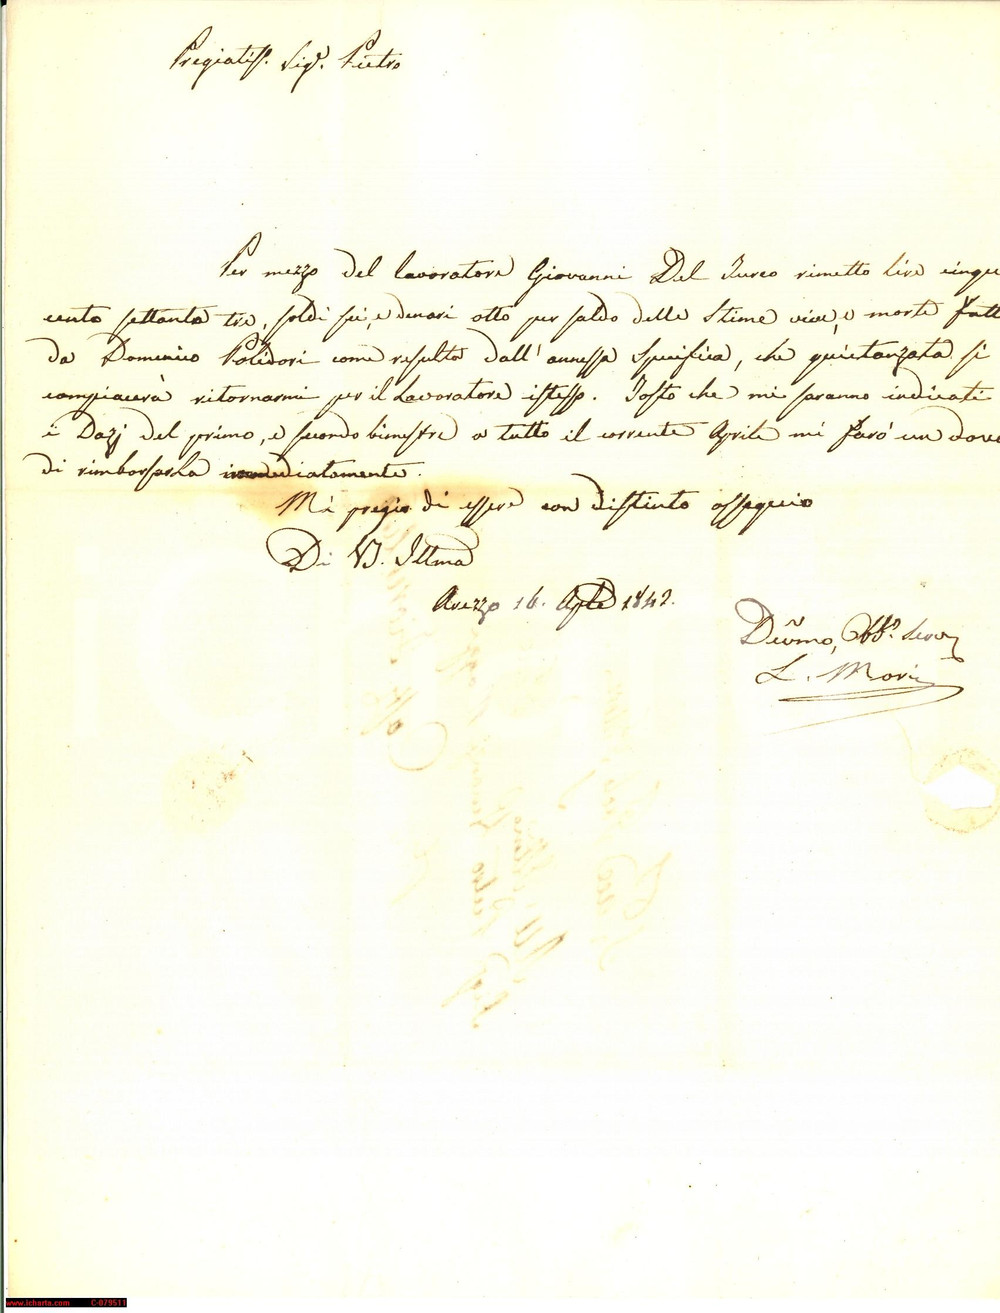 Pregiatiss. Sigr. Pietro
Per mezzo del lavoratore Giovanni Del Turco rimetto lire cinque
cento settanta tre, soldi sei, e denari otto per saldo delle Stime vive, e morte fatt
da Domenico Polidori come resulta dall'annessa Specifica, che quietanzata si
compiacerà ritornarmi per il Lavoratore istesso. Tosto che mi saranno indicati
i Dazj del primo, e secondo bimestre a tutto il corrente Aprile mi farò un dove
di rimborsarla immediatamente.
Mi pregio di essere con distinto ossequio
Di V. Illma
Arezzo 16. Aple 1842.
Devmo, Obbo. Serv
L. Mori
www.icharta.com C-079511